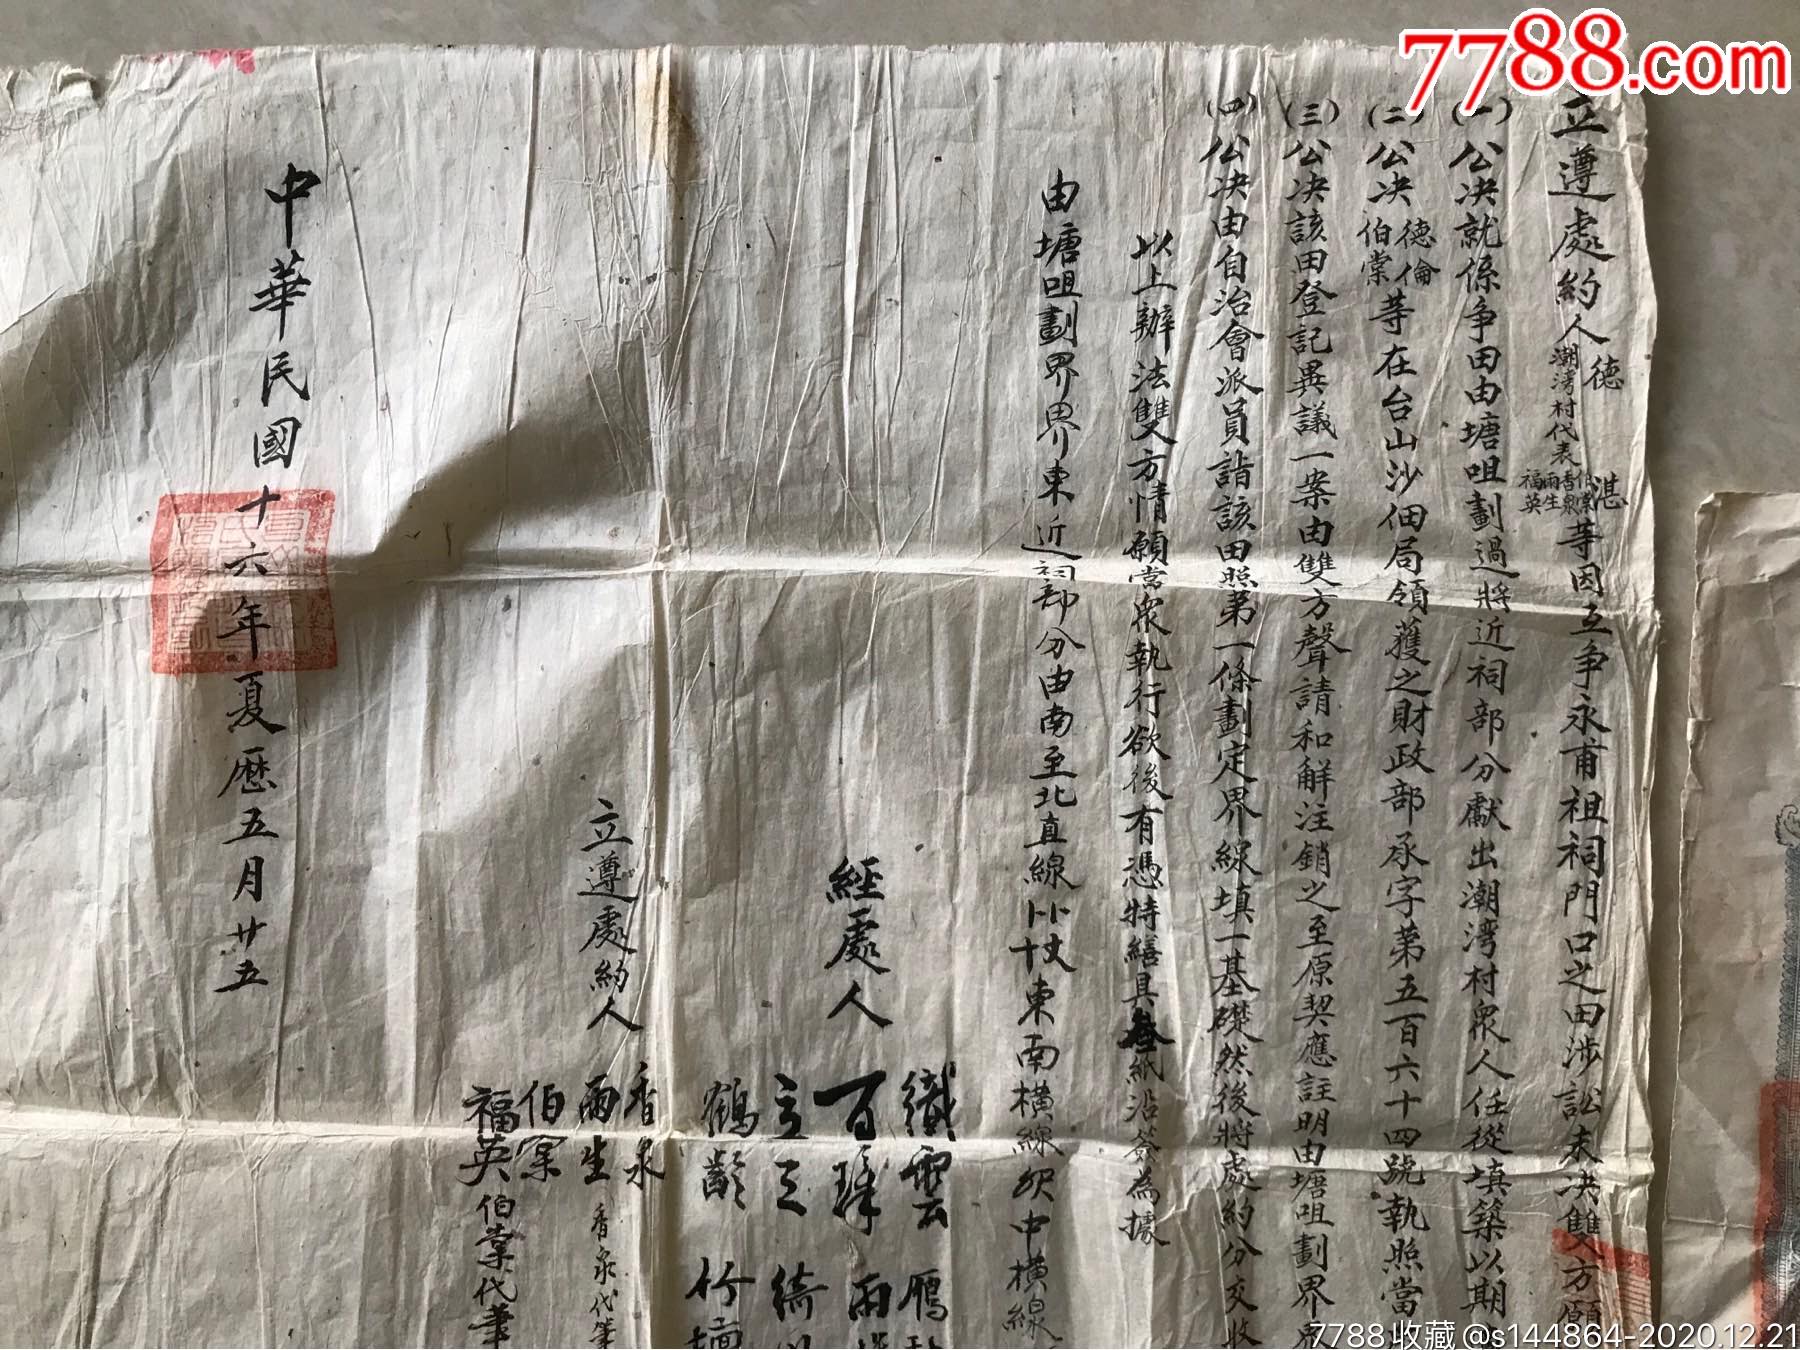 7788.com
立遵處約人德湛
潮湾村代表伯棠香泉雨生福英
等因互争永甫祖祠門口之田涉訟未决雙方願
(一)公决就係争田由塘咀劃過將近祠部分獻出潮湾村衆人任從填築以期
(二)公决德倫伯棠等在台山沙佃局領獲之財政部承字第五百六十四號執照當
(三)公决該田登記異議一案由雙方聲請和解注銷之至原契應註明由塘咀劃界
(四)公决由自治會派員詣該田照第一條劃定界線填一基礎然後將處約分交收
以上辦法雙方情願當衆執行欲後有憑特繕具叁紙沿簽為據
由塘咀劃界界東近祠部分由南至北直線
東南橫線
中橫線
經處人
織雲
雁
百
雨
立三
鶴齡
竹
立遵處約人
香泉
香泉代筆
雨生
伯棠
福英
伯棠代筆
中華民國十六年夏曆五月廿五
7788收藏@s144864-2020.12.21